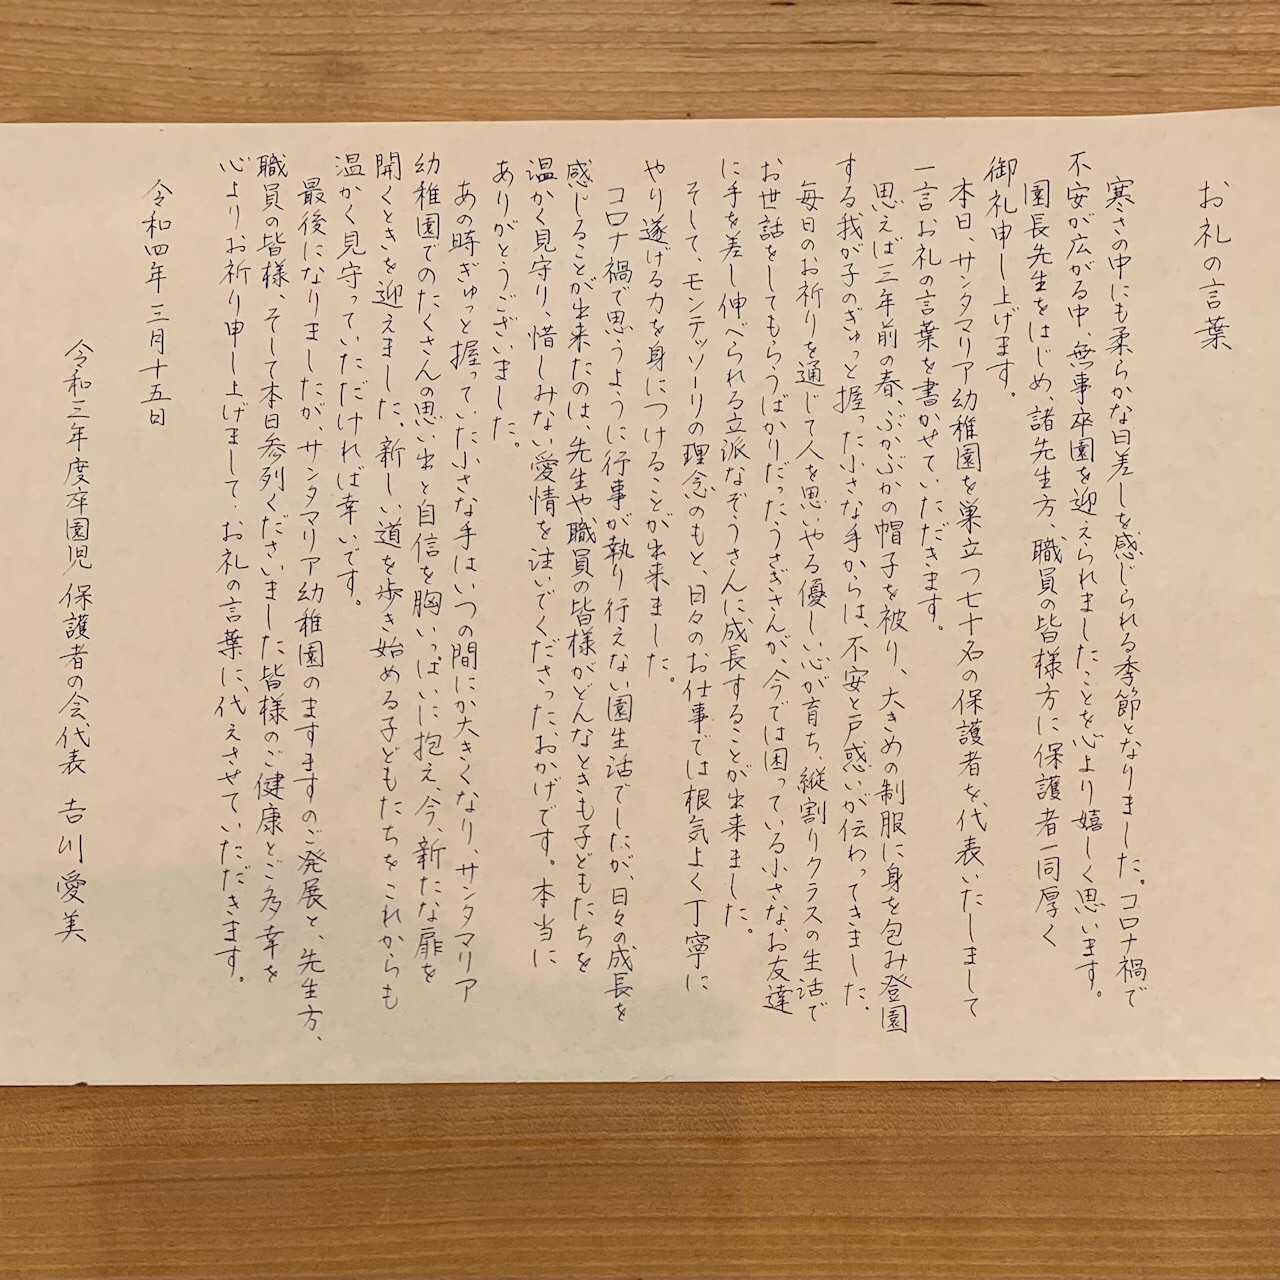 お礼の言葉
寒さの中にも柔らかな日差しを感じられる季節となりました。コロナ禍で
不安が広がる中、無事卒園を迎えられましたことを心より嬉しく思います。
園長先生をはじめ、諸先生方、職員の皆様方に保護者一同厚く
御礼申し上げます。
本日、サンタマリア幼稚園を巣立つ七十名の保護者を代表いたしまして
一言お礼の言葉を書かせていただきます。
思えば三年前の春、ぶかぶかの帽子を被り、大きめの制服に身を包み登園
する我が子のぎゅっと握った小さな手からは、不安と戸惑いが伝わってきました。
毎日のお祈りを通じて人を思いやる優しい心が育ち、縦割りクラスの生活で
お世話をしてもらうばかりだったうさぎさんが、今では困っている小さなお友達
に手を差し伸べられる立派なぞうさんに成長することが出来ました。
そして、モンテッソーリの理念のもと、日々のお仕事では根気よく丁寧に
やり遂げる力を身につけることが出来ました。
コロナ禍で思うように行事が執り行えない園生活でしたが、日々の成長を
感じることが出来たのは、先生や職員の皆様がどんなときも子どもたちを
温かく見守り、惜しみない愛情を注いでくださった、おかげです。本当に
ありがとうございました。
あの時ぎゅっと握っていた小さな手はいつの間にか大きくなり、サンタマリア
幼稚園でのたくさんの思い出と自信を胸いっぱいに抱え、今、新たな扉を
開くときを迎えました。新しい道を歩き始める子どもたちをこれからも
温かく見守っていただければ幸いです。
最後になりましたが、サンタマリア幼稚園のますますのご発展と、先生方、
職員の皆様、そして本日参列くださいました皆様のご健康とご多幸を
心よりお祈り申し上げまして、お礼の言葉に代えさせていただきます。
令和四年三月十五日
令和三年度卒園児 保護者の会代表 吉川愛美